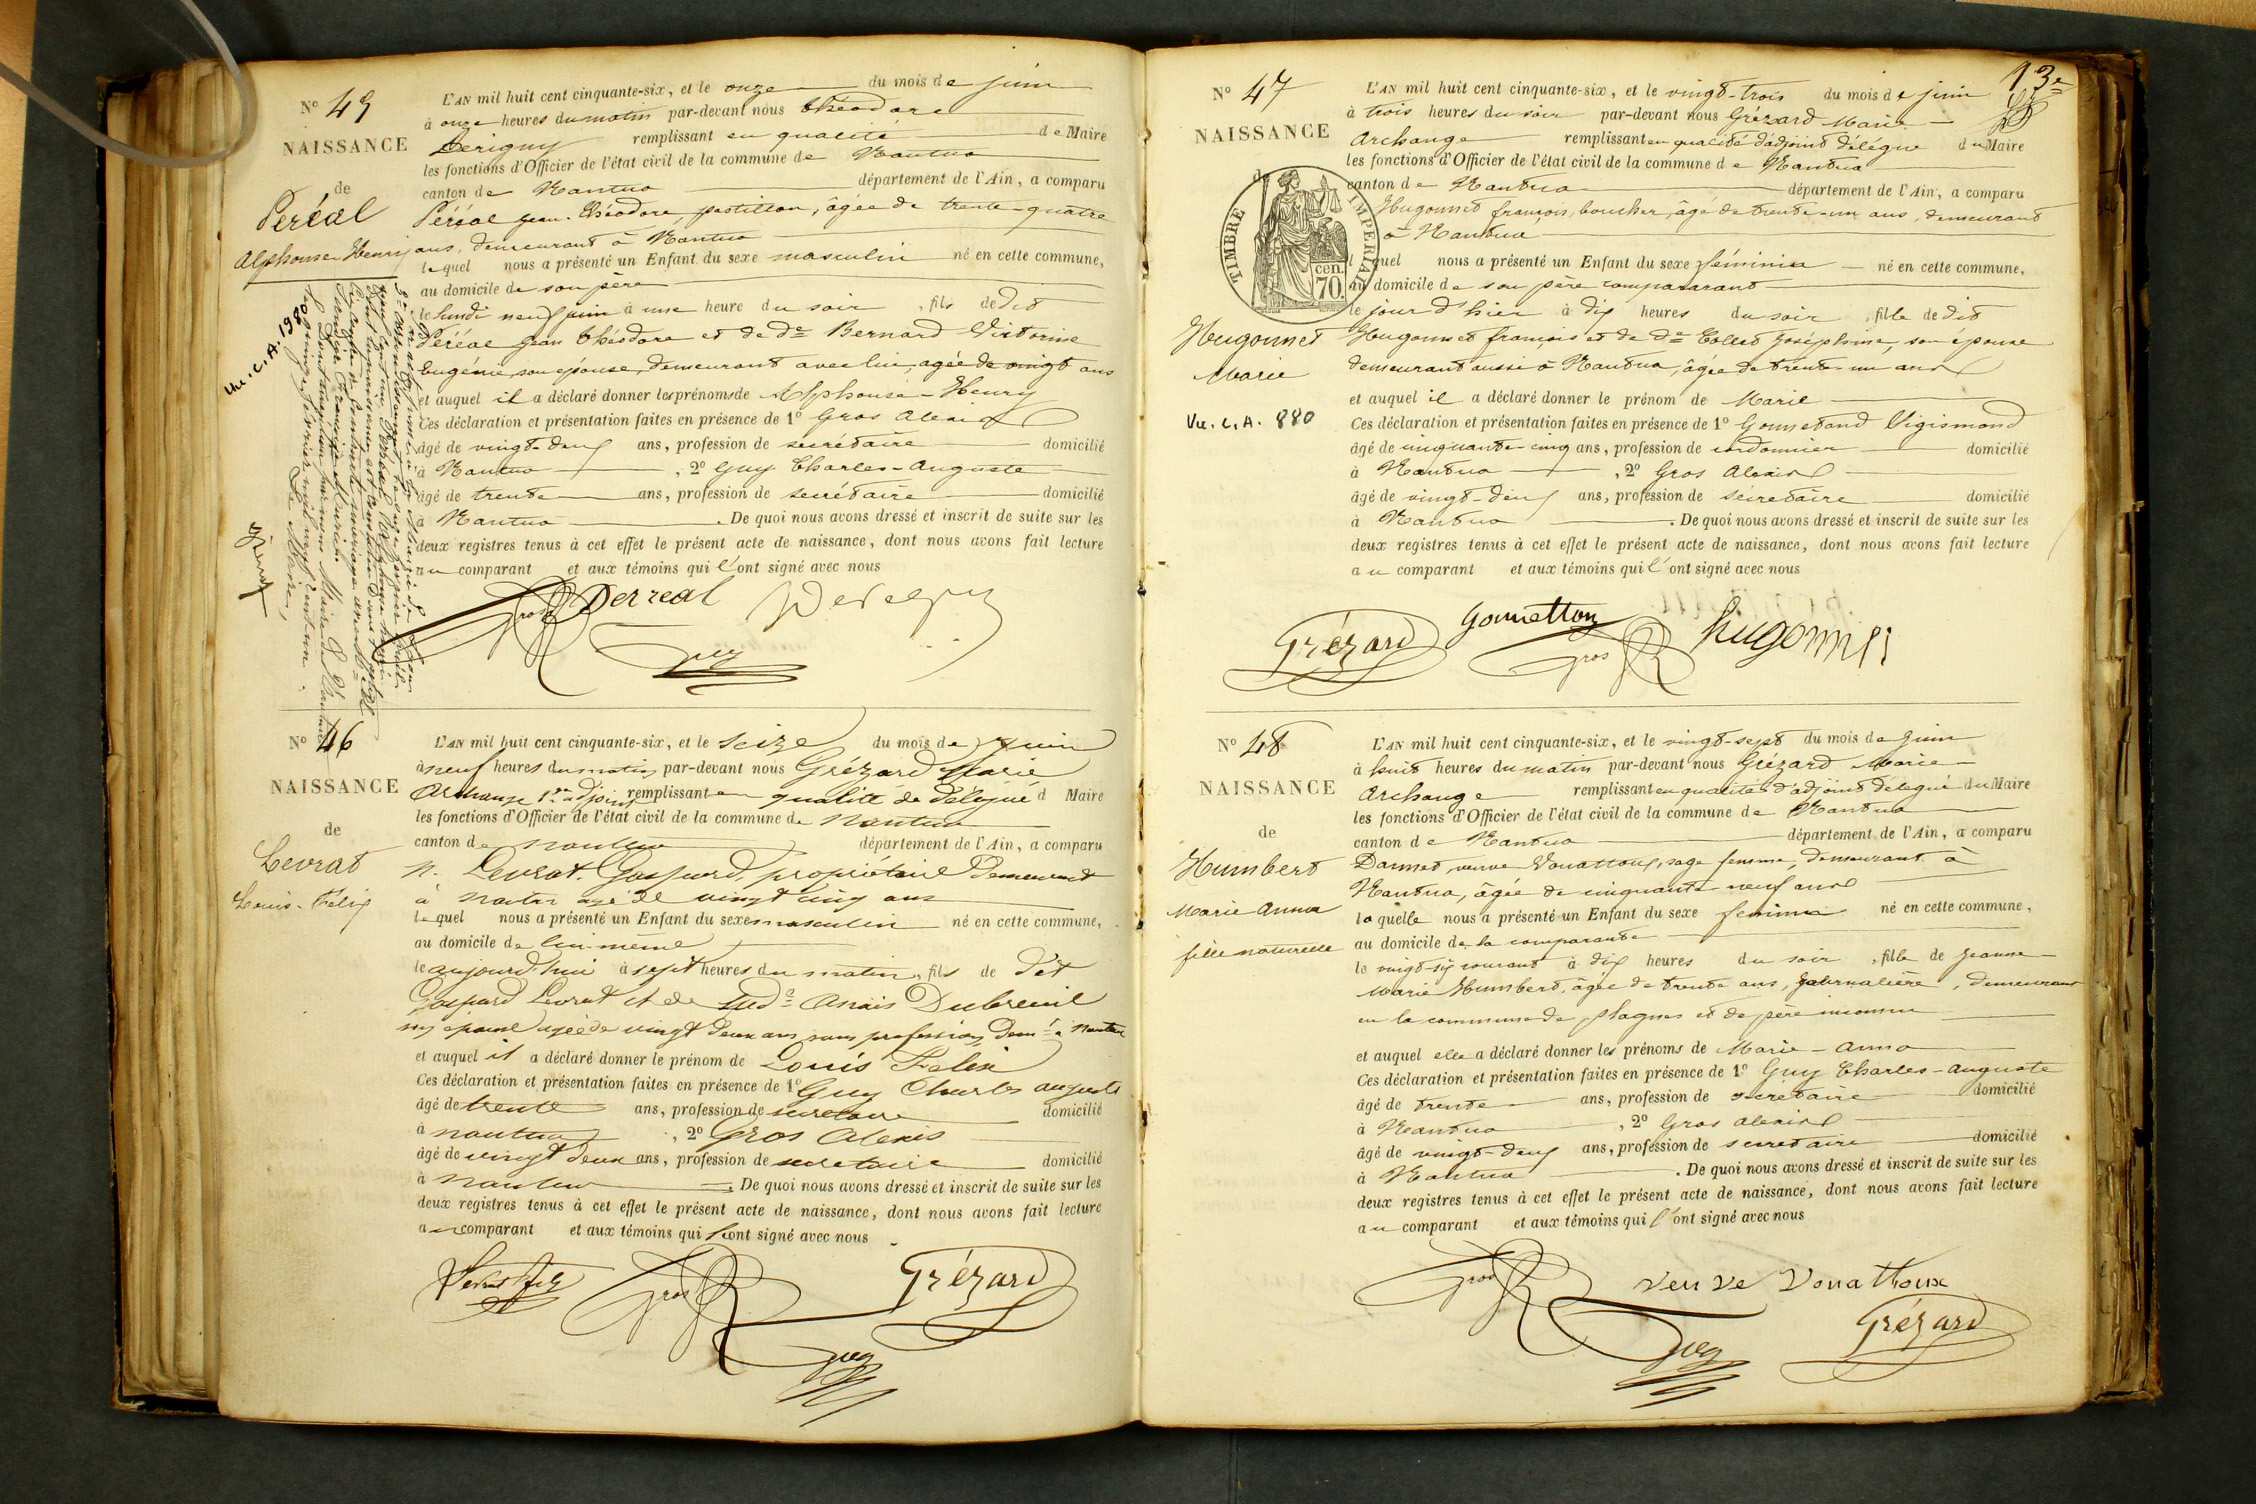 N° 45
NAISSANCE
de
Peréal
Alphonse Henry
Vu. C. A. 1980
L'AN mil huit cent cinquante-six, et le onze du mois de juin
à onze heures du matin par-devant nous Théodore
Derigny remplissant en qualité de Maire
les fonctions d'Officier de l'état civil de la commune de Nantua
canton de Nantua département de l'Ain, a comparu
Péréal jean-Théodore, postillon, âgée de trente-quatre
ans, demeurant à Nantua
lequel nous a présenté un Enfant du sexe masculin né en cette commune,
au domicile de son père
le lundi neuf juin à une heure du soir, fils de dit
Péréal jean Théodore et de de Bernard Victorine
Eugénie, son épouse, demeurant avec lui, agée de vingt ans
et auquel il a déclaré donner les prénoms de Alphonse-Henry
Ces déclaration et présentation faites en présence de 1° Gros Alexis
âgé de vingt-deux ans, profession de secrétaire domicilié
à Nantua, 2° Guy Charles-Auguste
âgé de trente ans, profession de secrétaire domicilié
à Nantua. De quoi nous avons dressé et inscrit de suite sur les
deux registres tenus à cet effet le présent acte de naissance, dont nous avons fait lecture
au comparant et aux témoins qui l'ont signé avec nous
Gros Perreal
Guy
N° 46
NAISSANCE
de
Levrat
Louis-Félix
L'AN mil huit cent cinquante-six, et le seize du mois de juin
à neuf heures du matin par-devant nous Grézard Marie
Archange 1er adjoint remplissant en qualité de délégué d Maire
les fonctions d'Officier de l'état civil de la commune de Nantua
canton de Nantua département de l'Ain, a comparu
Levrat Gaspard, propriétaire demeurant
à Nantua agé de vingt cinq ans
lequel nous a présenté un Enfant du sexe masculin né en cette commune,
au domicile de lui-même
le aujourd'hui à sept heures du matin, fils de dit
Gaspard Levrat et de Anaïs Dubreuil
épouse agée de vingt deux ans sans profession demt à Nantua
et auquel il a déclaré donner le prénom de Louis Felix
Ces déclaration et présentation faites en présence de 1° Guy Charles auguste
âgé de trente ans, profession de secretaire domicilié
à nantua, 2° Gros Alexis
âgé de vingt deux ans, profession de secretaire domicilié
à nantua. De quoi nous avons dressé et inscrit de suite sur les
deux registres tenus à cet effet le présent acte de naissance, dont nous avons fait lecture
au comparant et aux témoins qui l'ont signé avec nous
Gros Grézard
Guy
13e
N° 47
NAISSANCE
TIMBRE IMPERIAL
cen. 70.
Hugonnet
Marie
Vu. C. A. 880
L'AN mil huit cent cinquante-six, et le vingt-trois du mois de juin
à trois heures du soir par-devant nous Grézard Marie
Archange remplissant en qualité d'adjoint délégué du Maire
les fonctions d'Officier de l'état civil de la commune de Nantua
canton de Nantua département de l'Ain, a comparu
Hugonnet françois, boucher, âgé de trente-un ans, demeurant
à Nantua
lequel nous a présenté un Enfant du sexe féminin né en cette commune,
au domicile de son père comparant
le jour d'hier à dix heures du soir, fille de dit
Hugonnet françois et de de Collet Joséphine, son épouse
demeurant aussi à Nantua, âgée de trente-un ans
et auquel il a déclaré donner le prénom de Marie
Ces déclaration et présentation faites en présence de 1° Gonnetand Sigismond
âgé de cinquante-cinq ans, profession de cordonnier domicilié
à Nantua, 2° Gros Alexis
âgé de vingt-deux ans, profession de sécretaire domicilié
à Nantua. De quoi nous avons dressé et inscrit de suite sur les
deux registres tenus à cet effet le présent acte de naissance, dont nous avons fait lecture
au comparant et aux témoins qui l'ont signé avec nous
Grézard Gonnetton Gros hugonnet
N° 48
NAISSANCE
de
Humbert
Marie Anna
fille naturelle
L'AN mil huit cent cinquante-six, et le vingt-sept du mois de juin
à huit heures du matin par-devant nous Grézard Marie
Archange remplissant en qualité d'adjoint délégué du Maire
les fonctions d'Officier de l'état civil de la commune de Nantua
canton de Nantua département de l'Ain, a comparu
Dannet, veuve Vouattoux, sage femme, demeurant à
Nantua, âgée de cinquante-neuf ans
laquelle nous a présenté un Enfant du sexe feminin né en cette commune,
au domicile de la comparante
le vingt-six courant à dix heures du soir, fille de jeanne
Marie Humbert, âgée de trente ans, journalière, demeurant
en la commune de plagnes et de père inconnu
et auquel elle a déclaré donner les prénoms de Marie-Anna
Ces déclaration et présentation faites en présence de 1° Guy Charles-Auguste
âgé de trente ans, profession de secrétaire domicilié
à Nantua, 2° Gros Alexis
âgé de vingt-deux ans, profession de secretaire domicilié
à Nantua. De quoi nous avons dressé et inscrit de suite sur les
deux registres tenus à cet effet le présent acte de naissance, dont nous avons fait lecture
au comparant et aux témoins qui l'ont signé avec nous
Gros veuve Vouattoux
Guy Grézard